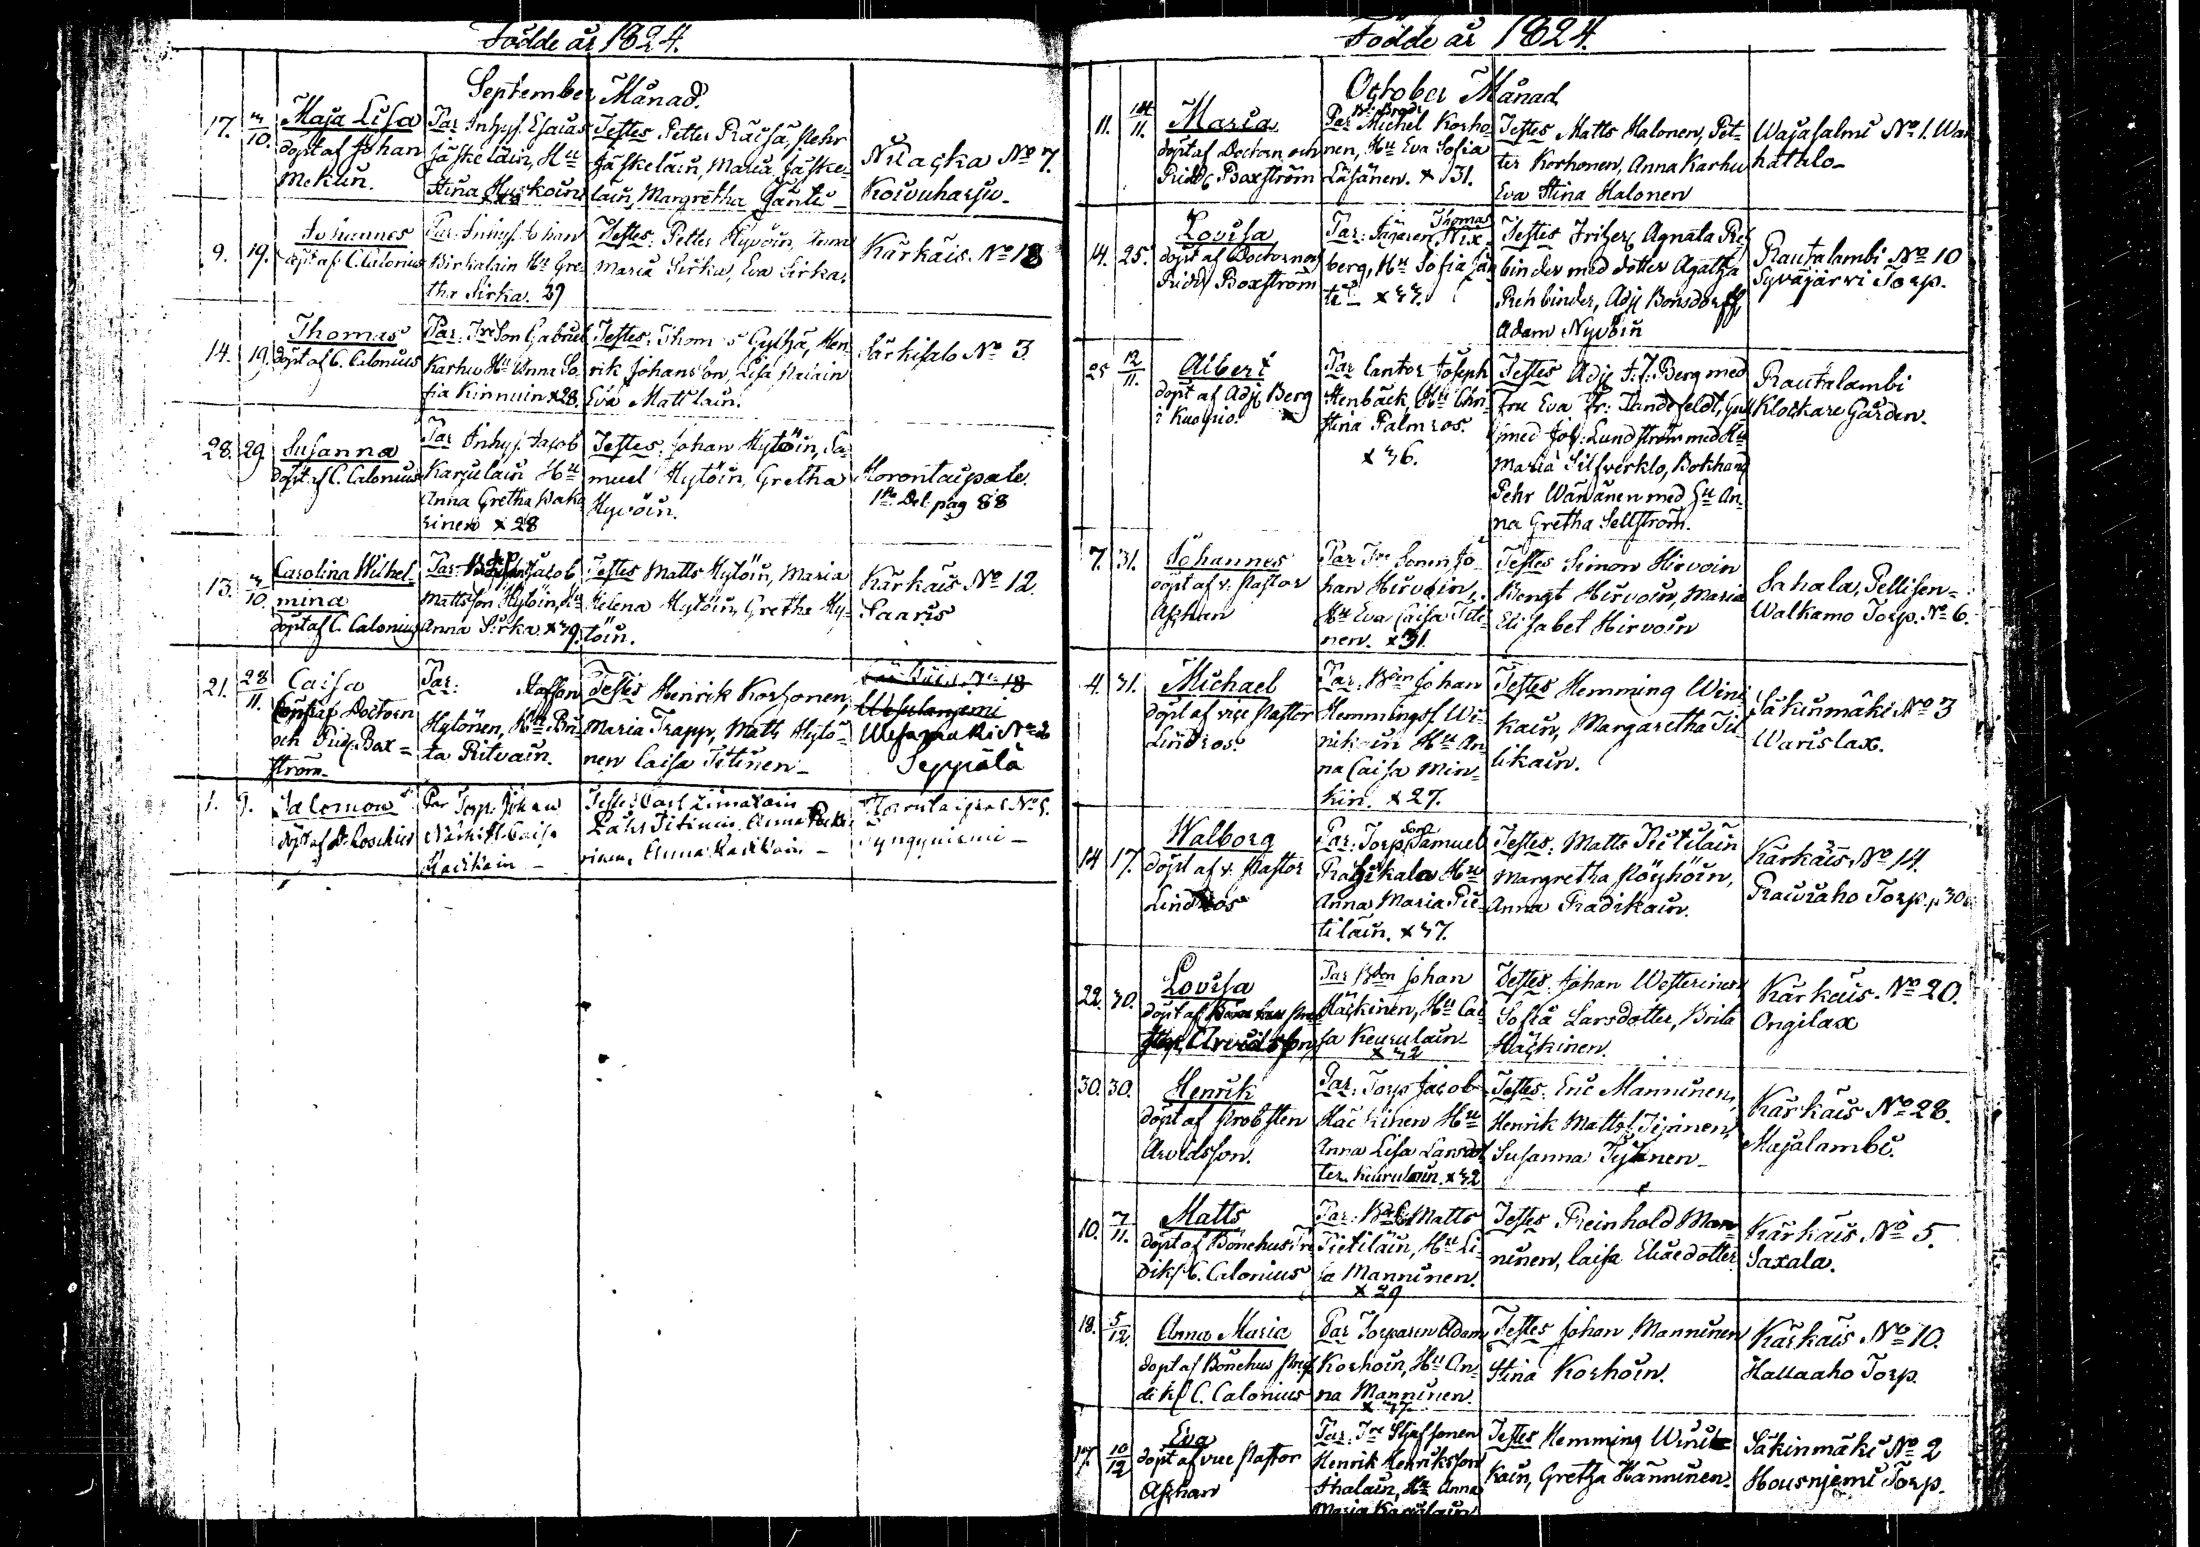 Födde år 1824.
September Månad.
17. 3/10. Maja Lisa
döpt af Johan
Mekun.
Par Inhys. Esaias
Jäskeläin, Hu
Stina Huskoin
Testes Petter Räisä, Pehr
Jäskeläin, Maria Jäske-
läin, Margretha Jänti
Nilacka No 7.
Koivuharju.
9. 19. Johannes
döpt af C. Calonius
Par: Inhys. Johan
Birkalain Hu Gre-
tha Sirka. 29
Testes: Petter Hyvöin, Anna
Maria Sirka, Eva Sirka.
Kärkäis. No 18
14. 19. Thomas
döpt af C. Calonius
Par: Gabriel
Karhu Hu Anna So-
fia Kinnuin x 28.
Testes: Thomas Gylthä, Hen-
rik Johansson, Lisa
Eva Mattlain.
Särkisalo No 3.
28. 29. Susanna
döpt af C. Calonius
Par Inhys. Jacob
Karjulain Hu
Anna Gretha Waka-
rinen x 28
Testes: Johan Hytöin, Sa-
muel Hytöin, Gretha
Hyvöin.
Horontaipale.
1ta Del. pag 88
13. 3/10. Carolina Wilhel-
mina
döpt af C. Calonius
Par: Jacob
Mattsson Hytöin, Hu
Anna Sirka x 39.
Testes Matts Hytöin, Maria
Helena Hytöin, Gretha Hy-
töin.
Kärkäis No 12.
Saaris
21. 28/11. Caisa
döpt af Doctorn
och Ridd. Box=
ström
Par: Staffan
Hytönen, Hu Bri-
ta Ritvain.
Testes Henrik Korhonen,
Maria Trapp, Matts Hytö-
nen Caisa Titinen
Kärkäis No 18
Wesamäki No 2
Seppälä
1. 9. Salomon
döpt af
Par Torp. Johan
Caisa
Testes Carl Limatain
Lars Titinen, Anna
Anna
No 5.
Födde år 1824.
October Månad
11. 14/11. Maria
döpt af Doctorn och
Ridd. Boxström
Par Michel Korho-
nen, Hu Eva Sofia
Läsänen. x 31.
Testes Matts Halonen, Pet-
ter Korhonen, Anna Karhu
Eva Stina Halonen
Wajasalmi No 1. Wan
hatalo
14. 25. Lovisa
döpt af Doctorn och
Ridd. Boxström
Par: Jägaren Thomas Wix-
berg, Hu Sofia Jän
ti x 37.
Testes Agnäla Reh
binder med dotter Agatha
Rehbinder, Adj Bonsdorff,
Adam Nyvöin
Rautalambi No 10
Syväjärvi Torp.
25 12/11. Albert
döpt af Adj. Berg
i Kuopio.
Par Cantor Joseph
Stenbäck, Hu Chri-
stina Palmros.
x 36.
Testes Adj. J. J. Berg med
Fru Eva Fr: Tandefeldt,
med Joh: Lundström med Hu
Maria Silfverklo, Bokhand
Pehr Wänänen med Hu An-
na Gretha Sellström.
Rautalambi
Klockare Gården.
7. 31. Johannes
döpt af v. Pastor
Asphan
Par Fre Sonen Jo-
han Hirvoin,
Hu Eva Caisa Titi-
nen. x 31.
Testes Simon Hirvoin
Bengt Hirvoin, Maria
Elisabet Hirvoin
Sahala, Pellisen=
Walkamo Torp. No 6.
4. 31. Michael
döpt af vice Pastor
Lindros.
Par: Bden Johan
Hemmings. Wi-
nikain Hu An-
na Caisa Min-
kin. x 27.
Testes Hemming Wini-
kain, Margaretha Til-
likain.
Säkinmäki No 3
Warislax.
14 17. Walborg
döpt af v. Pastor
Lindros
Par: Torp. Son Samuel
Hu
Anna Maria Pie-
tiläin. x 37.
Testes: Matts Pietiläin
Margretha Pöyhöin,
Anna Radikain.
Kärkäis No 14.
Rauviaho Torp. p 30
22. 30. Lovisa
döpt af
Arvidsson
Par Bden Johan
Häckinen, Hu Cai-
sa Keurulain
x 32
Testes. Johan Westerinen
Sofia Larsdotter, Brita
Häckinen.
Kärkäis. No 20.
Ongilax
30. 30. Henrik
döpt af Probsten
Arvidsson.
Par: Torp Jacob
Häckinen Hu
Anna Lisa Larsdot
ter Keurulain. x 32
Testes: Eric Manninen,
Henrik Matts. Jijnen,
Susanna
Kärkäis No 28.
Majalambi.
10. 7/11. Matts
döpt af Bönehus Pre
diks C. Calonius
Par: Matts
Pietiläin, Hu Li-
sa Manninen.
x 29
Testes Reinhold Man-
ninen, Caisa Eliædotter
Kärkäis No 5.
Saxala.
18. 5/12. Anna Maria
döpt af Bönehus Pre
diks C. Calonius
Par Torparen Adam
Korhoin, Hu An-
na Manninen.
x 37.
Testes Johan Manninen
Stina Korhoin.
Kärkäis No 10.
Hallaaho Torp.
17. 10/12 Eva
döpt af vice Pastor
Asphan
Par: Fre Styfsonen
Henrik Henriksson
Ahalain, Hu Anna
Maria Karjulain
Testes Hemming Wini-
kain, Gretha Hänninen.
Säkinmäki No 2
Housnjemi Torp.